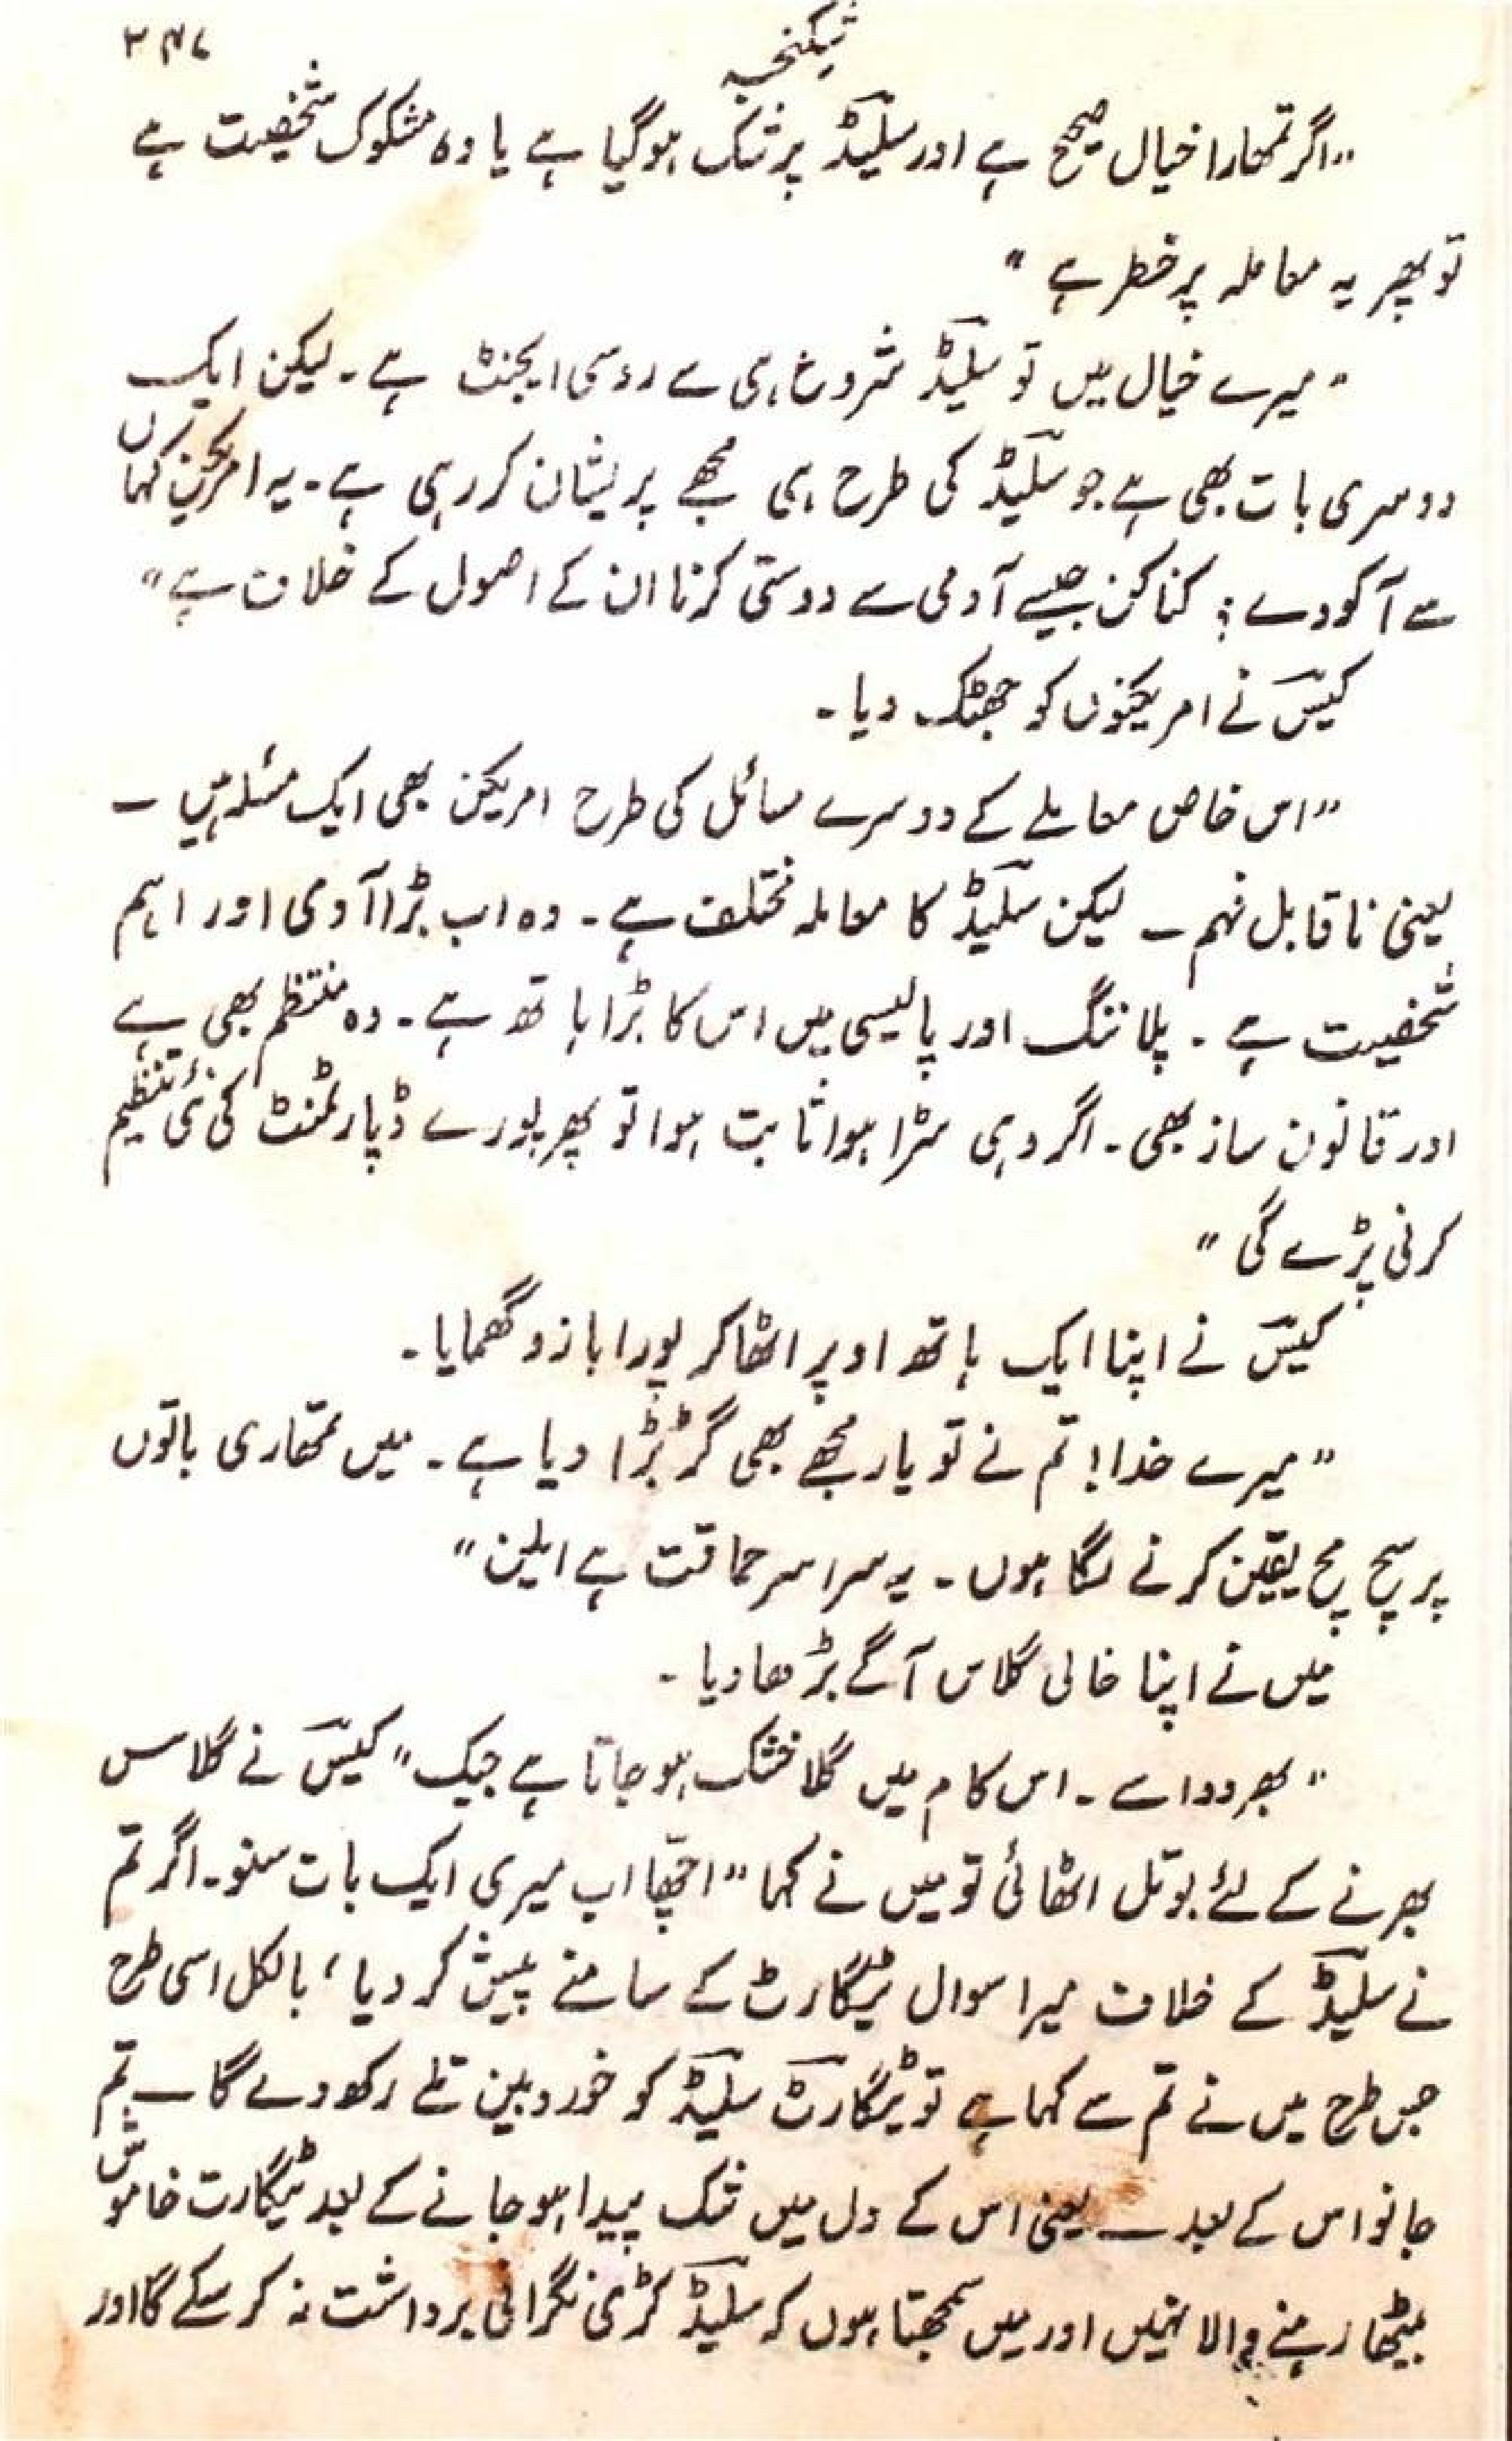 شکنجہ ۳۴۷
"اگر تمھارا خیال صحیح ہے اور سلیڈ پر شک ہوگیا ہے یا وہ مشکوک شخصیت ہے
تو پھر یہ معاملہ پر خطر ہے"
"میرے خیال میں تو سلیڈ شروع ہی سے روسی ایجنٹ ہے۔ لیکن ایک
دوسری بات بھی ہے جو سلیڈ کی طرح ہی مجھے پریشان کر رہی ہے۔ یہ امریکن کہاں
سے آکودے؟ کناکن جیسے آدمی سے دوستی کرنا ان کے اصول کے خلاف ہے"
کیس نے امریکنوں کو جھٹک دیا۔
"اس خاص معاملے کے دوسرے مسائل کی طرح امریکن بھی ایک مسئلہ ہیں ۔
یعنی ناقابل فہم ۔ لیکن سلیڈ کا معاملہ مختلف ہے۔ وہ اب بڑا آدمی اور اہم
شخصیت ہے ۔ پلاننگ اور پالیسی میں اس کا بڑا ہاتھ ہے۔ وہ منتظم بھی ہے
اور قانون ساز بھی۔ اگر وہی سڑا ہوا ثابت ہوا تو پھر پورے ڈپارٹمنٹ کی نئی تنظیم
کرنی پڑے گی"
کیس نے اپنا ایک ہاتھ اوپر اٹھا کر پورا بازو گھمایا۔
"میرے خدا! تم نے تو یار مجھے بھی گڑبڑا دیا ہے۔ میں تمھاری باتوں
پر سچ مچ یقین کرنے لگا ہوں۔ یہ سراسر حماقت ہے ایلین"
میں نے اپنا خالی گلاس آگے بڑھا دیا ۔
"بھر دو اسے ۔ اس کام میں گلا خشک ہو جاتا ہے جیک" کیس نے گلاس
بھرنے کے لئے بوتل اٹھائی تو میں نے کہا "اچھا اب میری ایک بات سنو۔ اگر تم
نے سلیڈ کے خلاف میرا سوال ٹیگارٹ کے سامنے پیش کر دیا، بالکل اسی طرح
جس طرح میں نے تم سے کہا ہے تو ٹیگارٹ سلیڈ کو خوردبین تلے رکھ دے گا ۔ تم
جانو اس کے بعد ۔ یعنی اس کے دل میں شک پیدا ہو جانے کے بعد ٹیگارت خاموش
بیٹھا رہنے والا نہیں اور میں سمجھتا ہوں کہ سلیڈ کڑی نگرانی برداشت نہ کر سکے گا اور